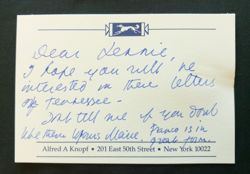 Dear Lennie,
I hope you will be
interested in these letters
of Tennessee –
Just tell me if you don't
like them
France is in
great form.
Alfred A Knopf • 201 East 50th Street • New York 10022